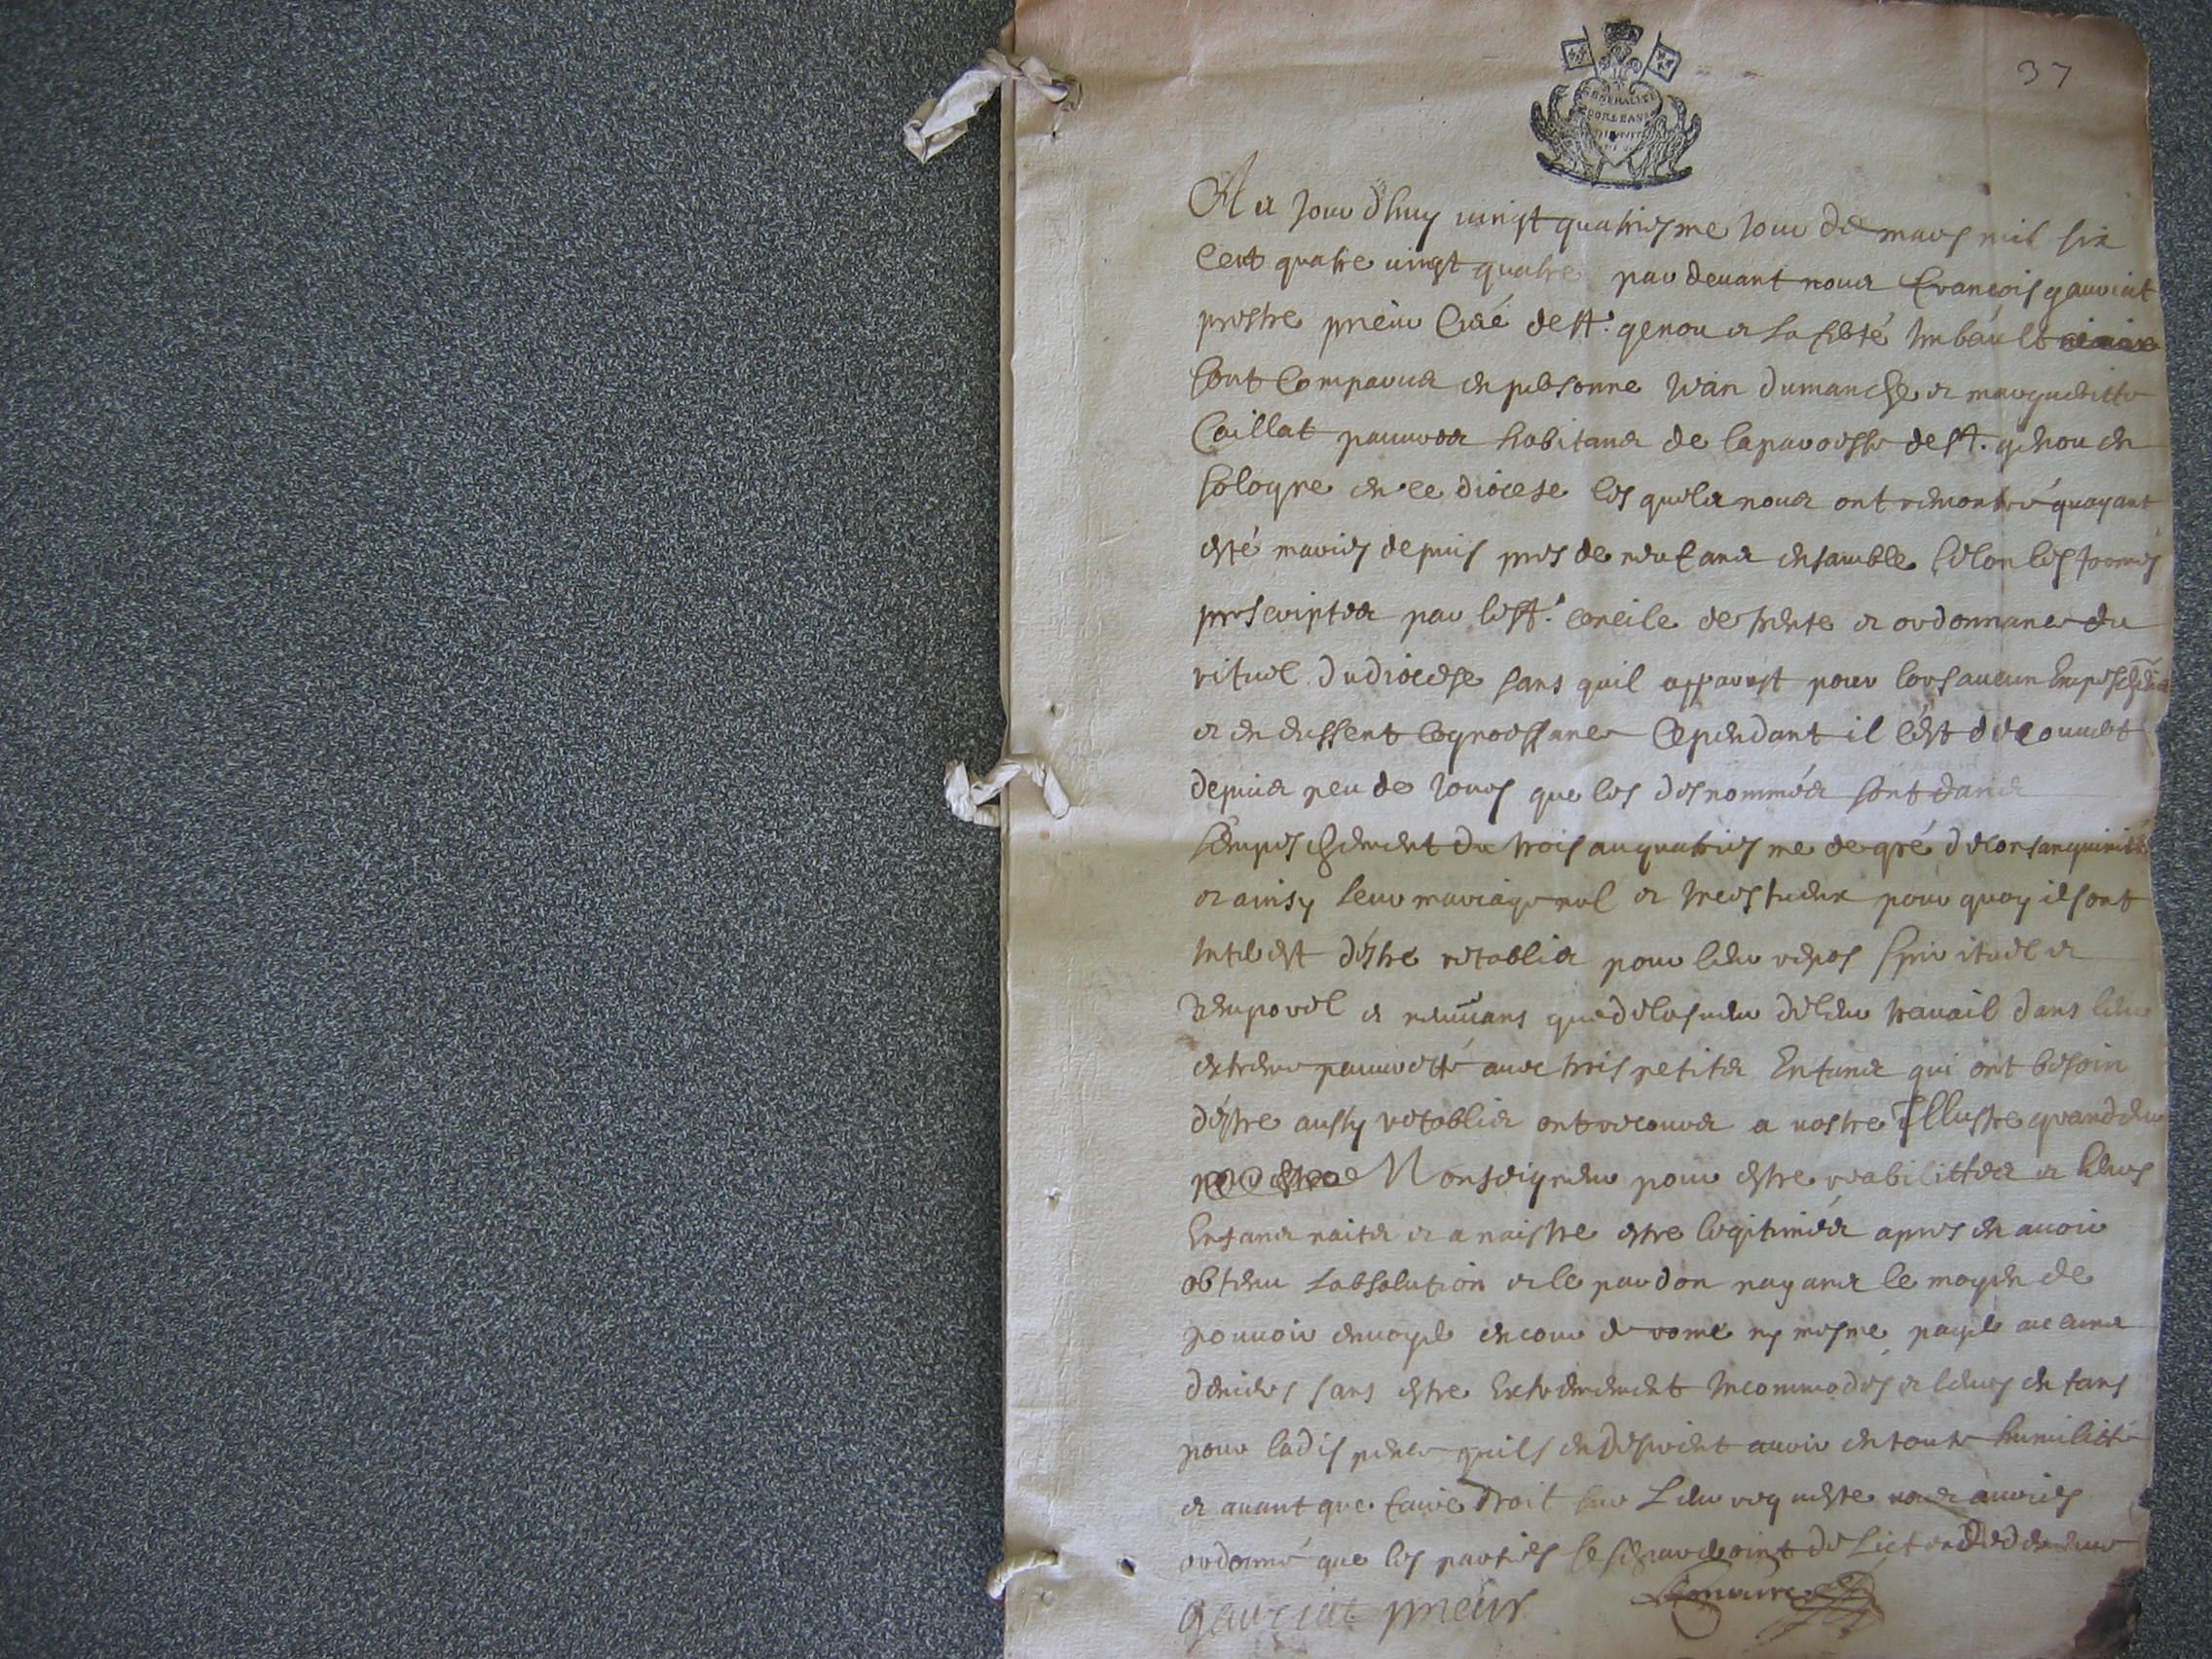 37
GENERALITE
DORLEANS
Au Jour dhuy vingt quatriesme Jour de mars mil six
Cent quatre vingt quatre par devant nous francois gauriat
prestre prieur Curé de st. genou et la ferté Imbault
sont Comparus en personne Jean dumanche et margueritte
Caillat pauvres habitans de la paroisse de st. genou en
sologne en ce diocese les quels nous ont remontré quayant
esté mariés depuis pres de neuf ans ensamble selon les formes
prescriptes par le st. concile de trente et ordonnance du
rituel du diocese sans quil apparust pour lors aucun Empeschemt
et en eussent cognoissance Cependant il cest decouvert
depuis peu de Jours que les desnommés sont dans
lempeschement du trois au quatriesme degré de consanguinité
et ainsy leur mariage nul et Incestueux pour quoy ils ont
Interest destre retablis pour leur repos spirituel et
temporel et ne vivans que de la sueur de leur travail dans leur
extreme pauvretté avec trois petits Enfans qui ont besoin
destre aussy retablis ont recours a vostre Illustre grandeur
Monseigneur pour estre reabilittés et leurs
Enfans naits et a naistre estre legitimés apres en avoir
obtenu labsolution et le pardon nayans le moyen de
pouvoir envoyer en cour de rome ny mesme payer aucuns
deniers sans estre Extremement Incommodés et leurs enfans
pour la dispence quils en desirent avoir en toute humilitté
et avant que faire droit sur Leur requeste nous aurions
ordonné que les parties se separeroint de Lict et de demeure
gauriat prieur